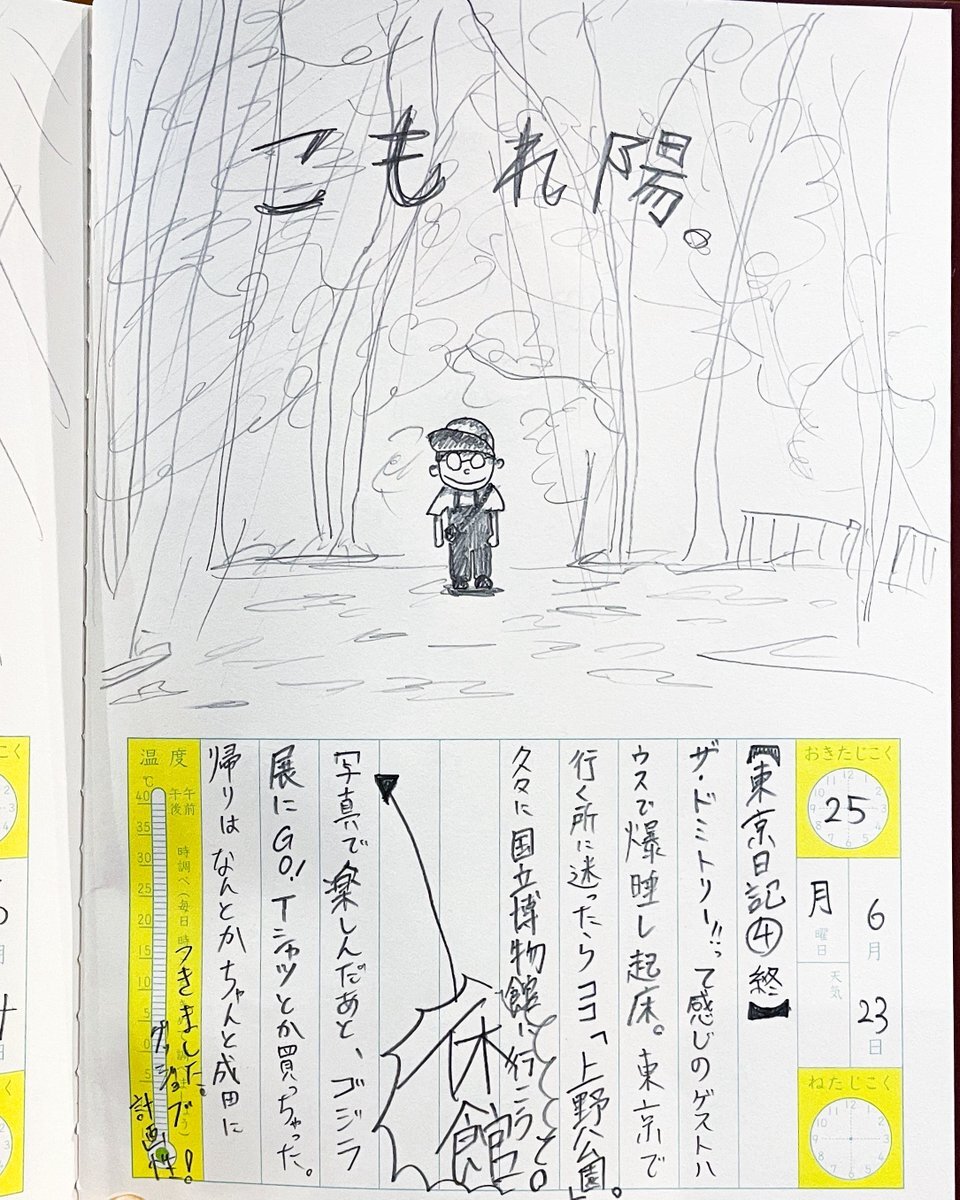 こもれ陽。
おきたじこく
25
6月23日
月曜日
天気
ねたじこく
【東京日記④終】
ザ・ドミトリー!!って感じのゲストハ
ウスで爆睡し起床。東京で
行く所に迷ったらココ「上野公園」。
久々に国立博物館に行こうぞ。
休館
写真で楽しんだあと、ゴジラ
展にGO!Tシャツとか買っちゃった。
帰りはなんとかちゃんと成田に
つきました。
グッジョブ
計画性!
温度
℃
午前
午後
時調べ(毎日
40
35
30
25
20
15
10
5
0
5